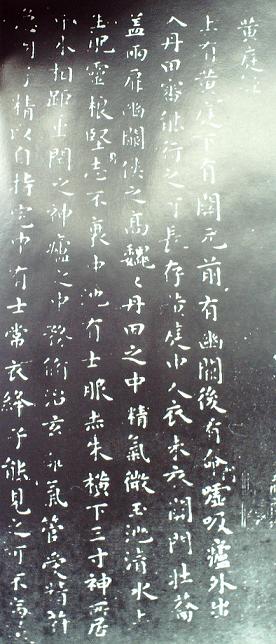 黄庭經
上有黄庭下有關元前有幽闕後有命嘘吸廬外出
入丹田審能行之可長存黄庭中人衣朱衣關門壮蘥
盖兩扉幽闕侠之高魏魏丹田之中精氣微玉池清水上
生肥靈根堅志不衰中池有士服赤朱横下三寸神所居
中外相距重閉之神廬之中務脩治玄𤓰氣管受精符
急固子精以自持宅中有士常衣絳子能見之可不病